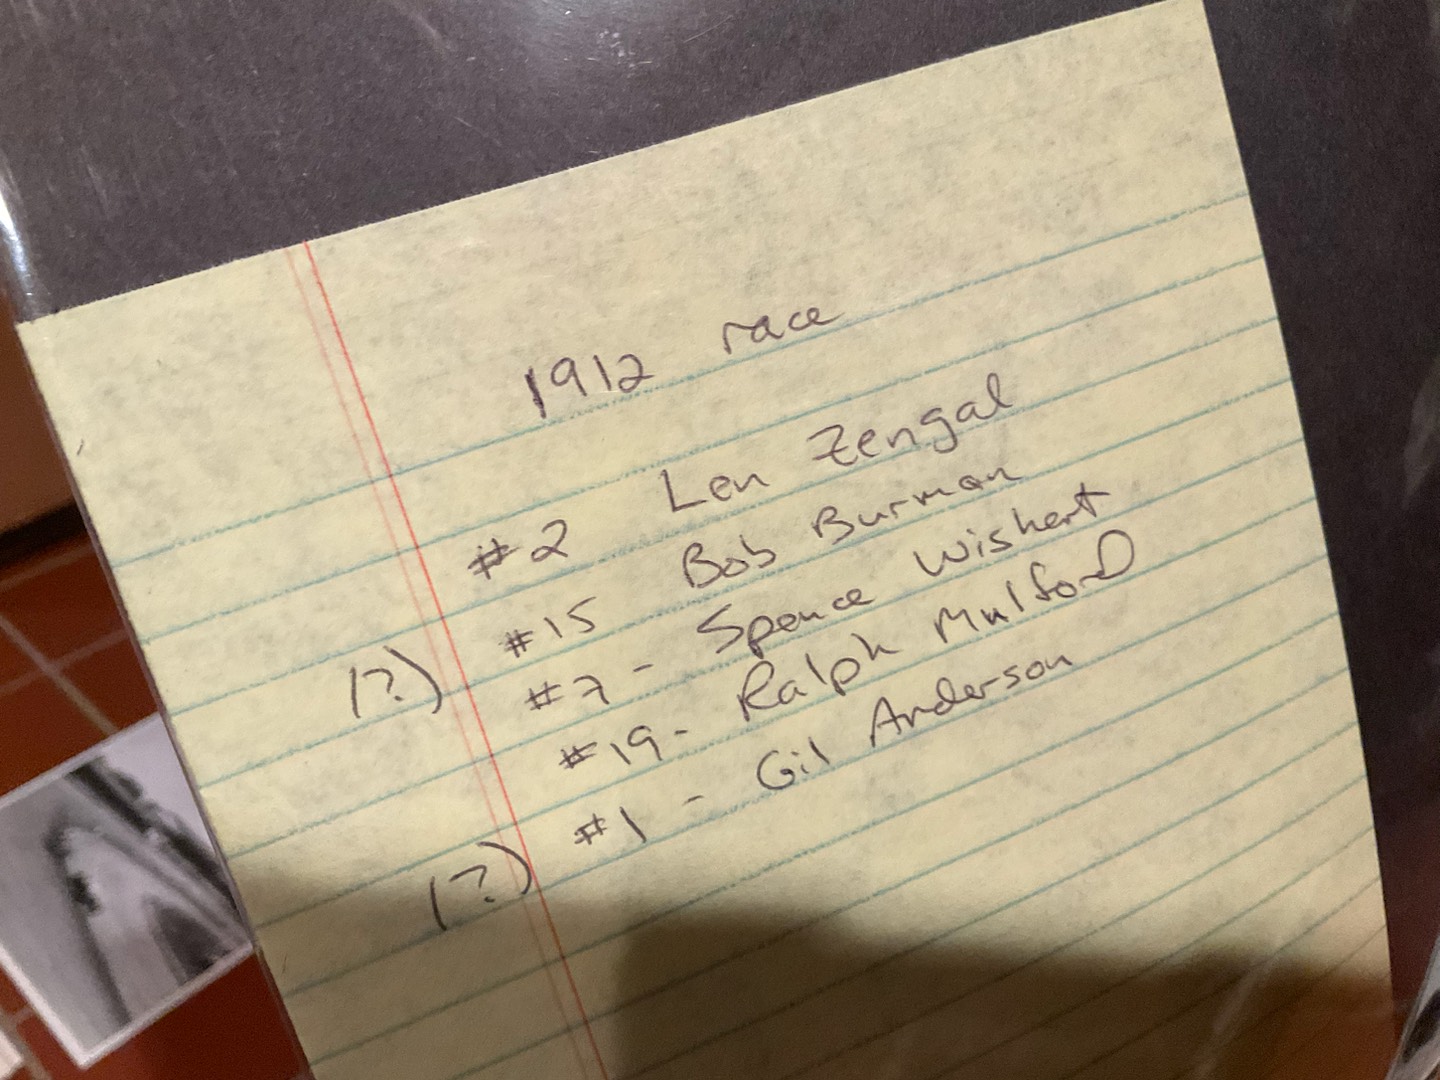 1912 race
#2 Len Zengal
#15 Bob Burman
(?) #7 - Spence Wishert
#19 - Ralph Mulford
(?) #1 - Gil Anderson